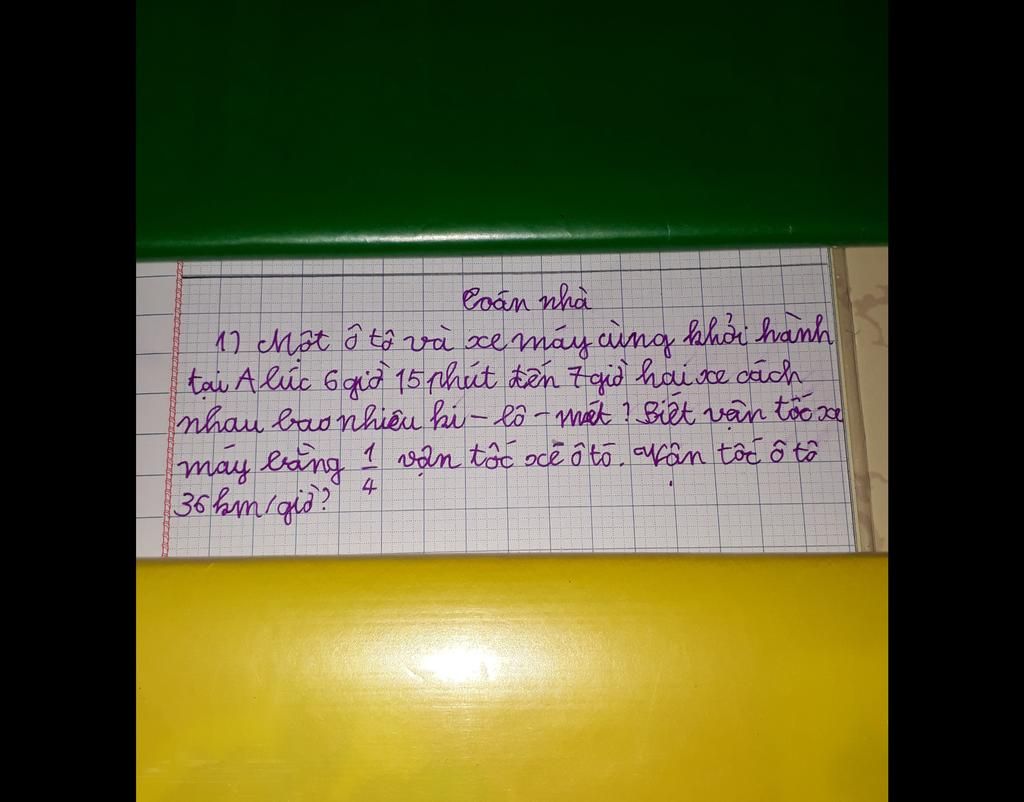 Toán nhà
1) Một ô tô và xe máy cùng khởi hành
tại A lúc 6 giờ 15 phút đến 7 giờ hai xe cách
nhau bao nhiêu ki-lô-mét? Biết vận tốc xe
máy bằng 1/4 vận tốc xê ô tô. Vận tốc ô tô
36 km/giờ?